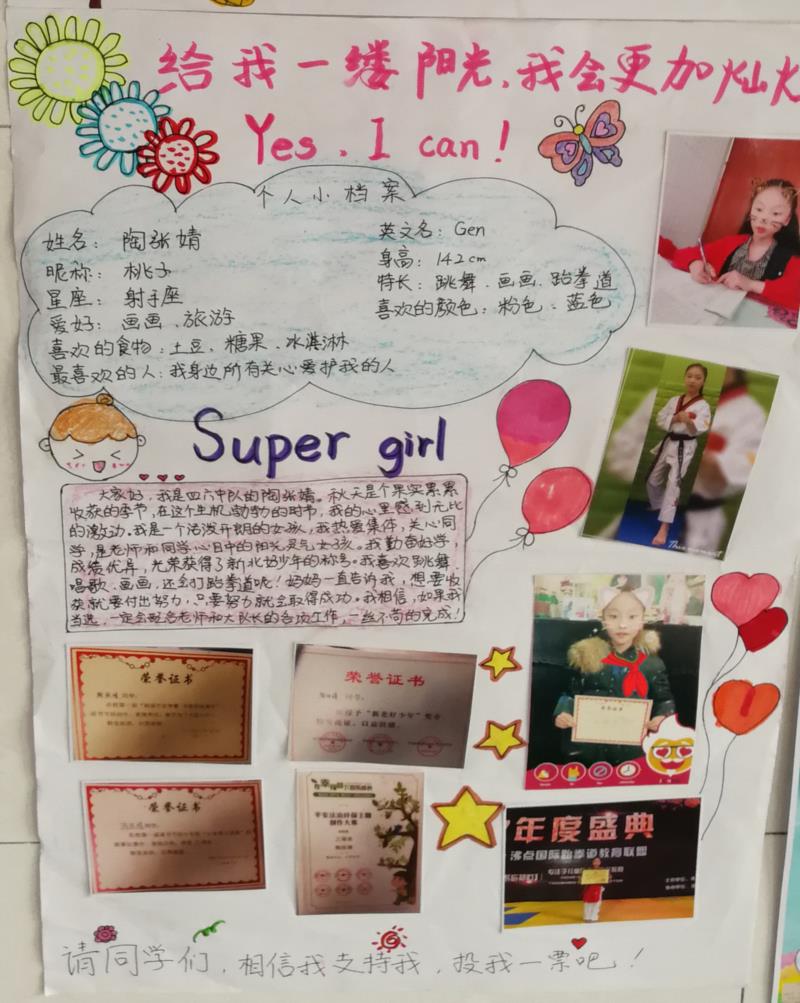 给我一缕阳光,我会更加灿
Yes, I can!
个人小档案
姓名: 陶张婧
英文名: Gen
昵称: 桃子
身高: 142cm
星座: 射手座
特长: 跳舞、画画、跆拳道
爱好: 画画、旅游
喜欢的颜色: 粉色、蓝色
喜欢的食物: 土豆、糖果、冰淇淋
最喜欢的人: 我身边所有关心爱护我的人
Super girl
大家好,我是四六中队的陶张婧。秋天是个果实累累
收获的季节,在这个生机勃勃的时节,我的心里感到无比
的激动。我是一个活泼开朗的女孩,我热爱集体,关心同
学,是老师和同学心目中的阳光灵气女孩。我勤奋好学,
成绩优异,光荣获得了新北好少年的称号。我喜欢跳舞、
唱歌、画画,还会打跆拳道呢!妈妈一直告诉我,想要收
获就要付出努力,只要努力就会取得成功。我相信,如果我
当选,一定会配合老师和大队长的各项工作,一丝不苟的完成!
荣誉证书
荣誉证书
荣誉证书
年度盛典
沸点国际跆拳道教育联盟
请同学们,相信我支持我,投我一票吧!